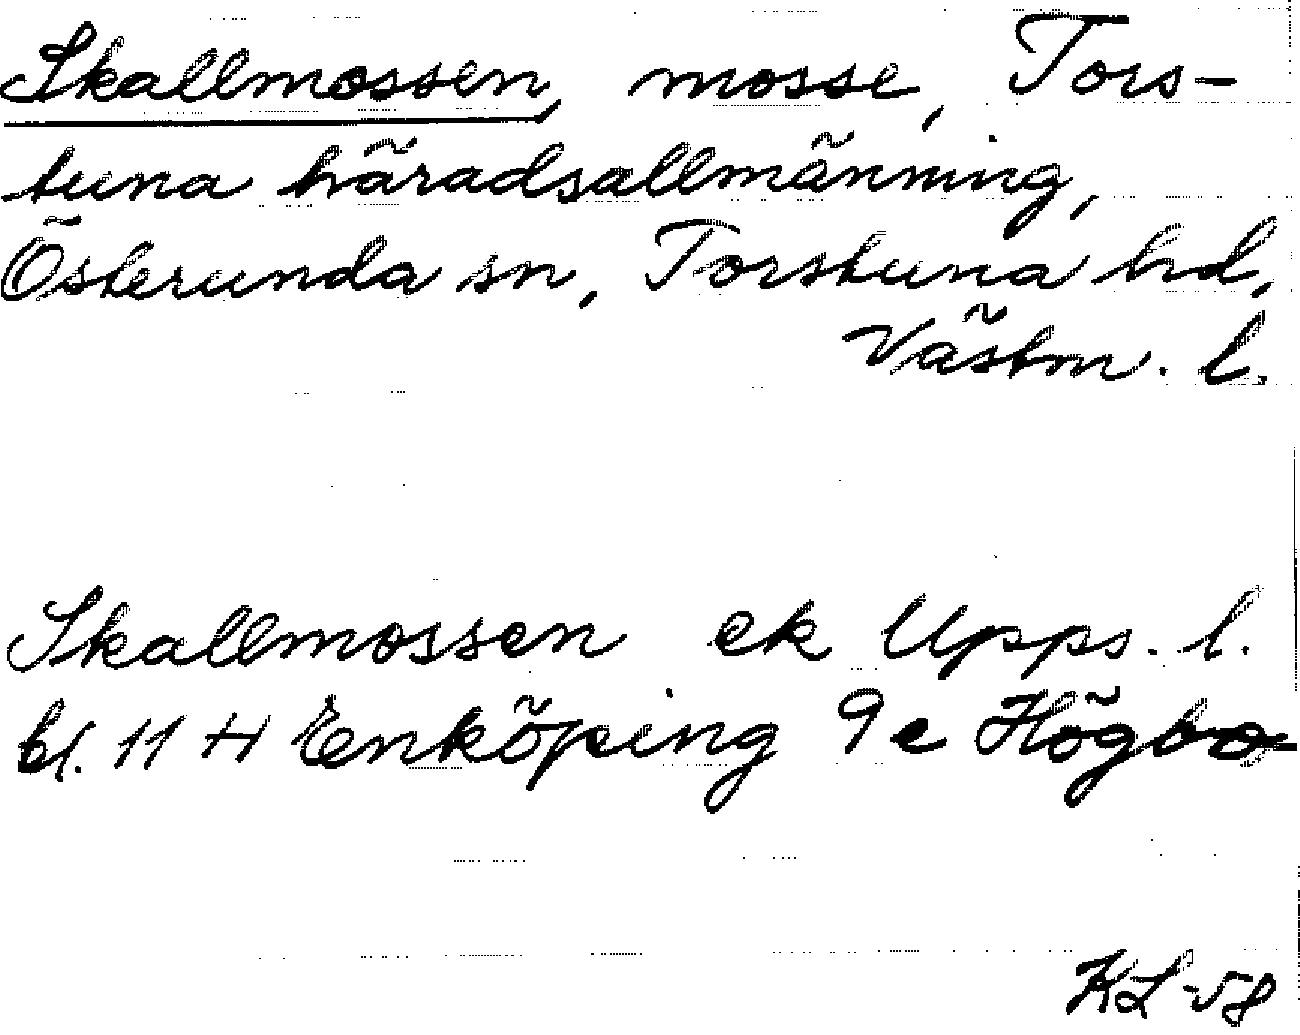 Skallmossen, mosse, Tors-
tuna häradsallmänning,
Österunda sn, Torstuna hd,
Västm. l.
Skallmossen ek Upps. l.
bl. 11 H Enköping 9e Högbo
KL-58